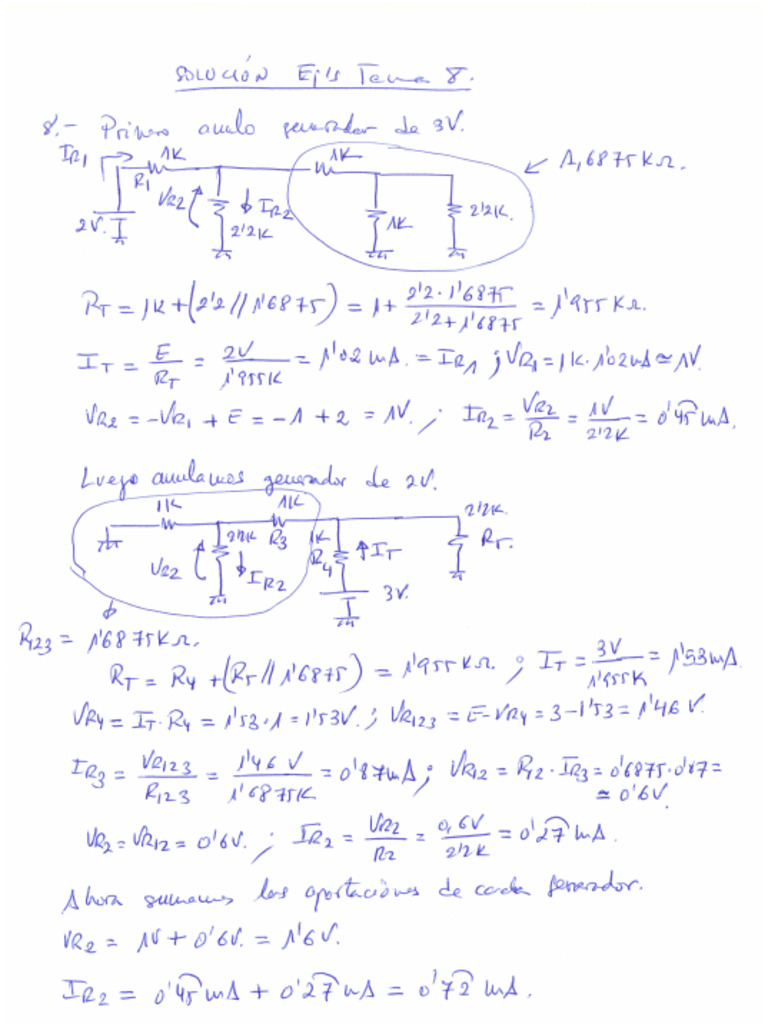 SOLUCIÓN Ej's Tema 8.
8.- Primero anulo generador de 3V.
IR1 1K 1K 1,6875KΩ.
R1 VR2 IR2
2V. 2'2K 1K 2'2K.
RT = 1K + (2'2 // 1'6875) = 1 + 2'2 · 1'6875 / 2'2 + 1'6875 = 1'955KΩ.
IT = E / RT = 2V / 1'955K = 1'02mA. = IR1 ; VR1 = 1K · 1'02mA ≃ 1V.
VR2 = -VR1 + E = -1 + 2 = 1V. ; IR2 = VR2 / R2 = 1V / 2'2K = 0'45 mA.
Luego anulamos generador de 2V.
1K 1K 2'2K.
2'2K R3 1K R4 IT R5.
VR2 IR2 3V.
R123 = 1'6875KΩ.
RT = R4 + (R5 // 1'6875) = 1'955KΩ ; IT = 3V / 1'955K = 1'53mA
VR4 = IT · R4 = 1'53 · 1 = 1'53V. ; VR123 = E - VR4 = 3 - 1'53 = 1'46V.
IR3 = VR123 / R123 = 1'46V / 1'6875K = 0'87mA ; VR12 = R12 · IR3 = 0'6875 · 0'87 =
≃ 0'6V.
VR2 = VR12 = 0'6V. ; IR2 = VR2 / R2 = 0,6V / 2'2K = 0'27 mA.
Ahora sumamos las aportaciones de cada generador.
VR2 = 1V + 0'6V. = 1'6V.
IR2 = 0'45 mA + 0'27 mA = 0'72 mA.